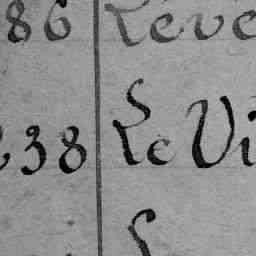 86 Leve
238 Le Vi